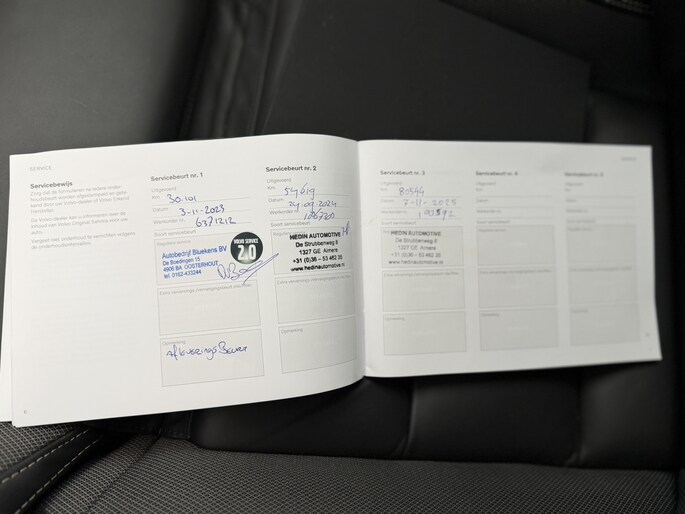 SERVICE
Servicebewijs
Zorg dat de formulieren na iedere onder-
houdsbeurt worden afgestempeld en gete-
kend door uw Volvo-dealer of Volvo Erkend
Hersteller.
Uw Volvo-dealer kan u informeren over de
inhoud van Volvo Original Service voor uw
auto.
Vergeet niet onderhoud te verrichten volgens
de onderhoudsintervallen.
Servicebeurt nr. 1
Uitgevoerd
Km 30.101
Datum 3-11-2023
Werkorder nr. 6371212
Soort servicebeurt
Reguliere service
Autobedrijf Bluekens BV
De Boedingen 15
4906 BA OOSTERHOUT
tel. 0162-433244
VOLVO SERVICE
2.0
Opmerking
Afleverings Beurt
Servicebeurt nr. 2
Uitgevoerd
Km 54619
Datum 24.09.2024
Werkorder nr.
Soort servicebeurt
HEDIN AUTOMOTIVE
De Strubbenweg 8
1327 GE Almere
+31 (0)36 - 53 462 35
www.hedinautomotive.nl
Opmerking
Servicebeurt nr. 3
Uitgevoerd
Km 80344
Datum 7-11-2025
Werkorder nr.
Soort servicebeurt
HEDIN AUTOMOTIVE
De Strubbenweg 8
1327 GE Almere
+31 (0)36 - 53 462 35
www.hedinautomotive.nl
Opmerking
Servicebeurt nr. 4
Uitgevoerd
Km
Datum
Werkorder nr.
Soort servicebeurt
Opmerking